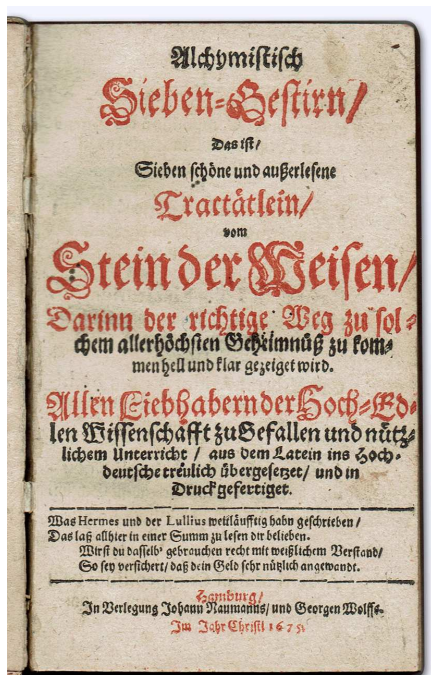 Alchymistisch
Sieben-Gestirn/
Das ist/
Sieben schöne und außerlesene
Tractätlein/
vom
Stein der Weisen/
Darinn der richtige Weg zu sol-
chem allerhöchsten Geheimnüß zu kom-
men hell und klar gezeiget wird.
Allen Liebhabern der Hoch-Ed-
len Wissenschafft zu Gefallen und nütz-
lichem Unterricht / aus dem Latein ins Hoch-
deutsche treulich übergesetzet/ und in
Druck gefertiget.
Was Hermes und der Lullius weitläufftig habn geschrieben /
Das laß allhier in einer Summ zu lesen dir belieben.
Wirst du dasselb' gebrauchen recht mit weißlichem Verstand/
So sey versichert/ daß dein Geld sehr nützlich angewandt.
Hamburg/
In Verlegung Johann Naumanns/ und Georgen Wolffs.
Im Jahr Christi 1675.